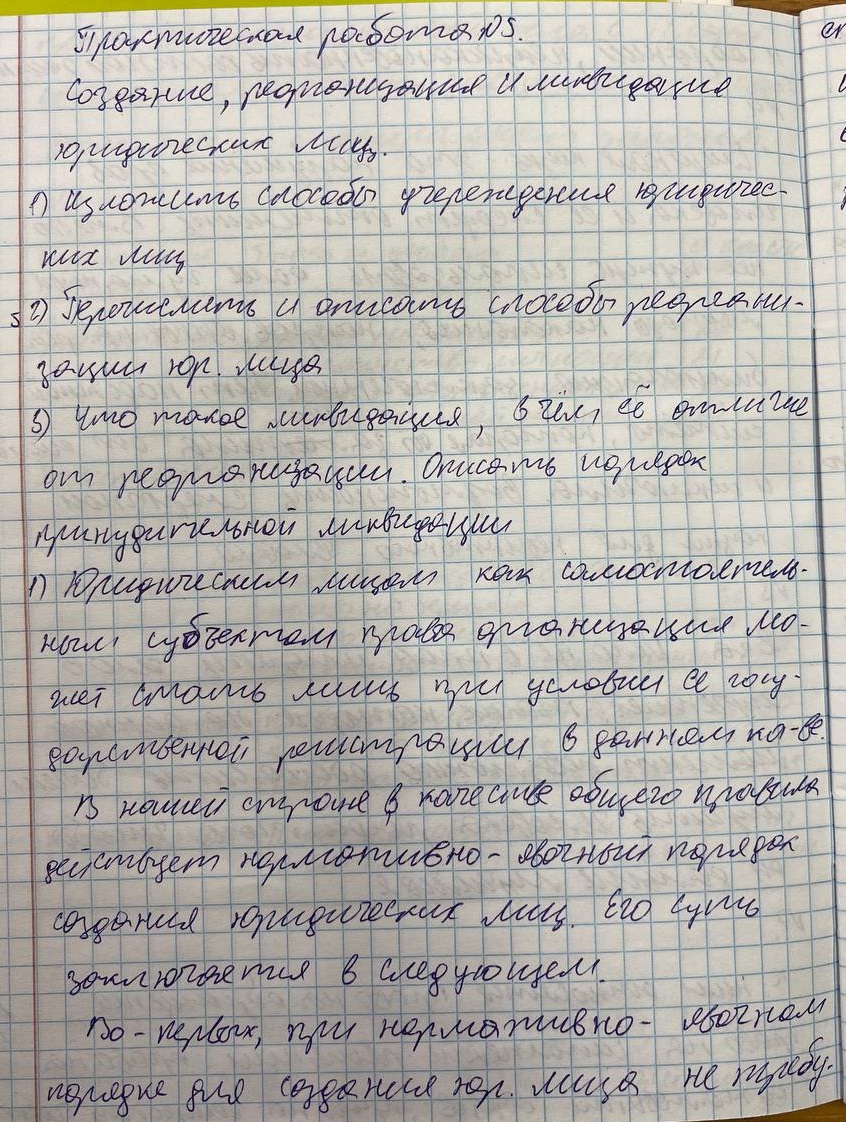 Практическая работа №5.
Создание, реорганизация и ликвидация
юридических лиц.
1) Изложить способы учереждения юридичес-
ких лиц
2) Перечислить и описать способы реоргани-
зации юр. лица
3) Что такое ликвидация, в чём её отличие
от реорганизации. Описать порядок
принудительной ликвидации
1) Юридическим лицом как самостоятель-
ным субъектом права организация мо-
жет стать лишь при условии ее госу-
дарственной регистрации в данном ка-ве.
В нашей стране в качестве общего правила
действует нормативно-явочный порядок
создания юридических лиц. Его суть
заключается в следующем.
Во-первых, при нормативно-явочном
порядке для создания юр. лица не требу-